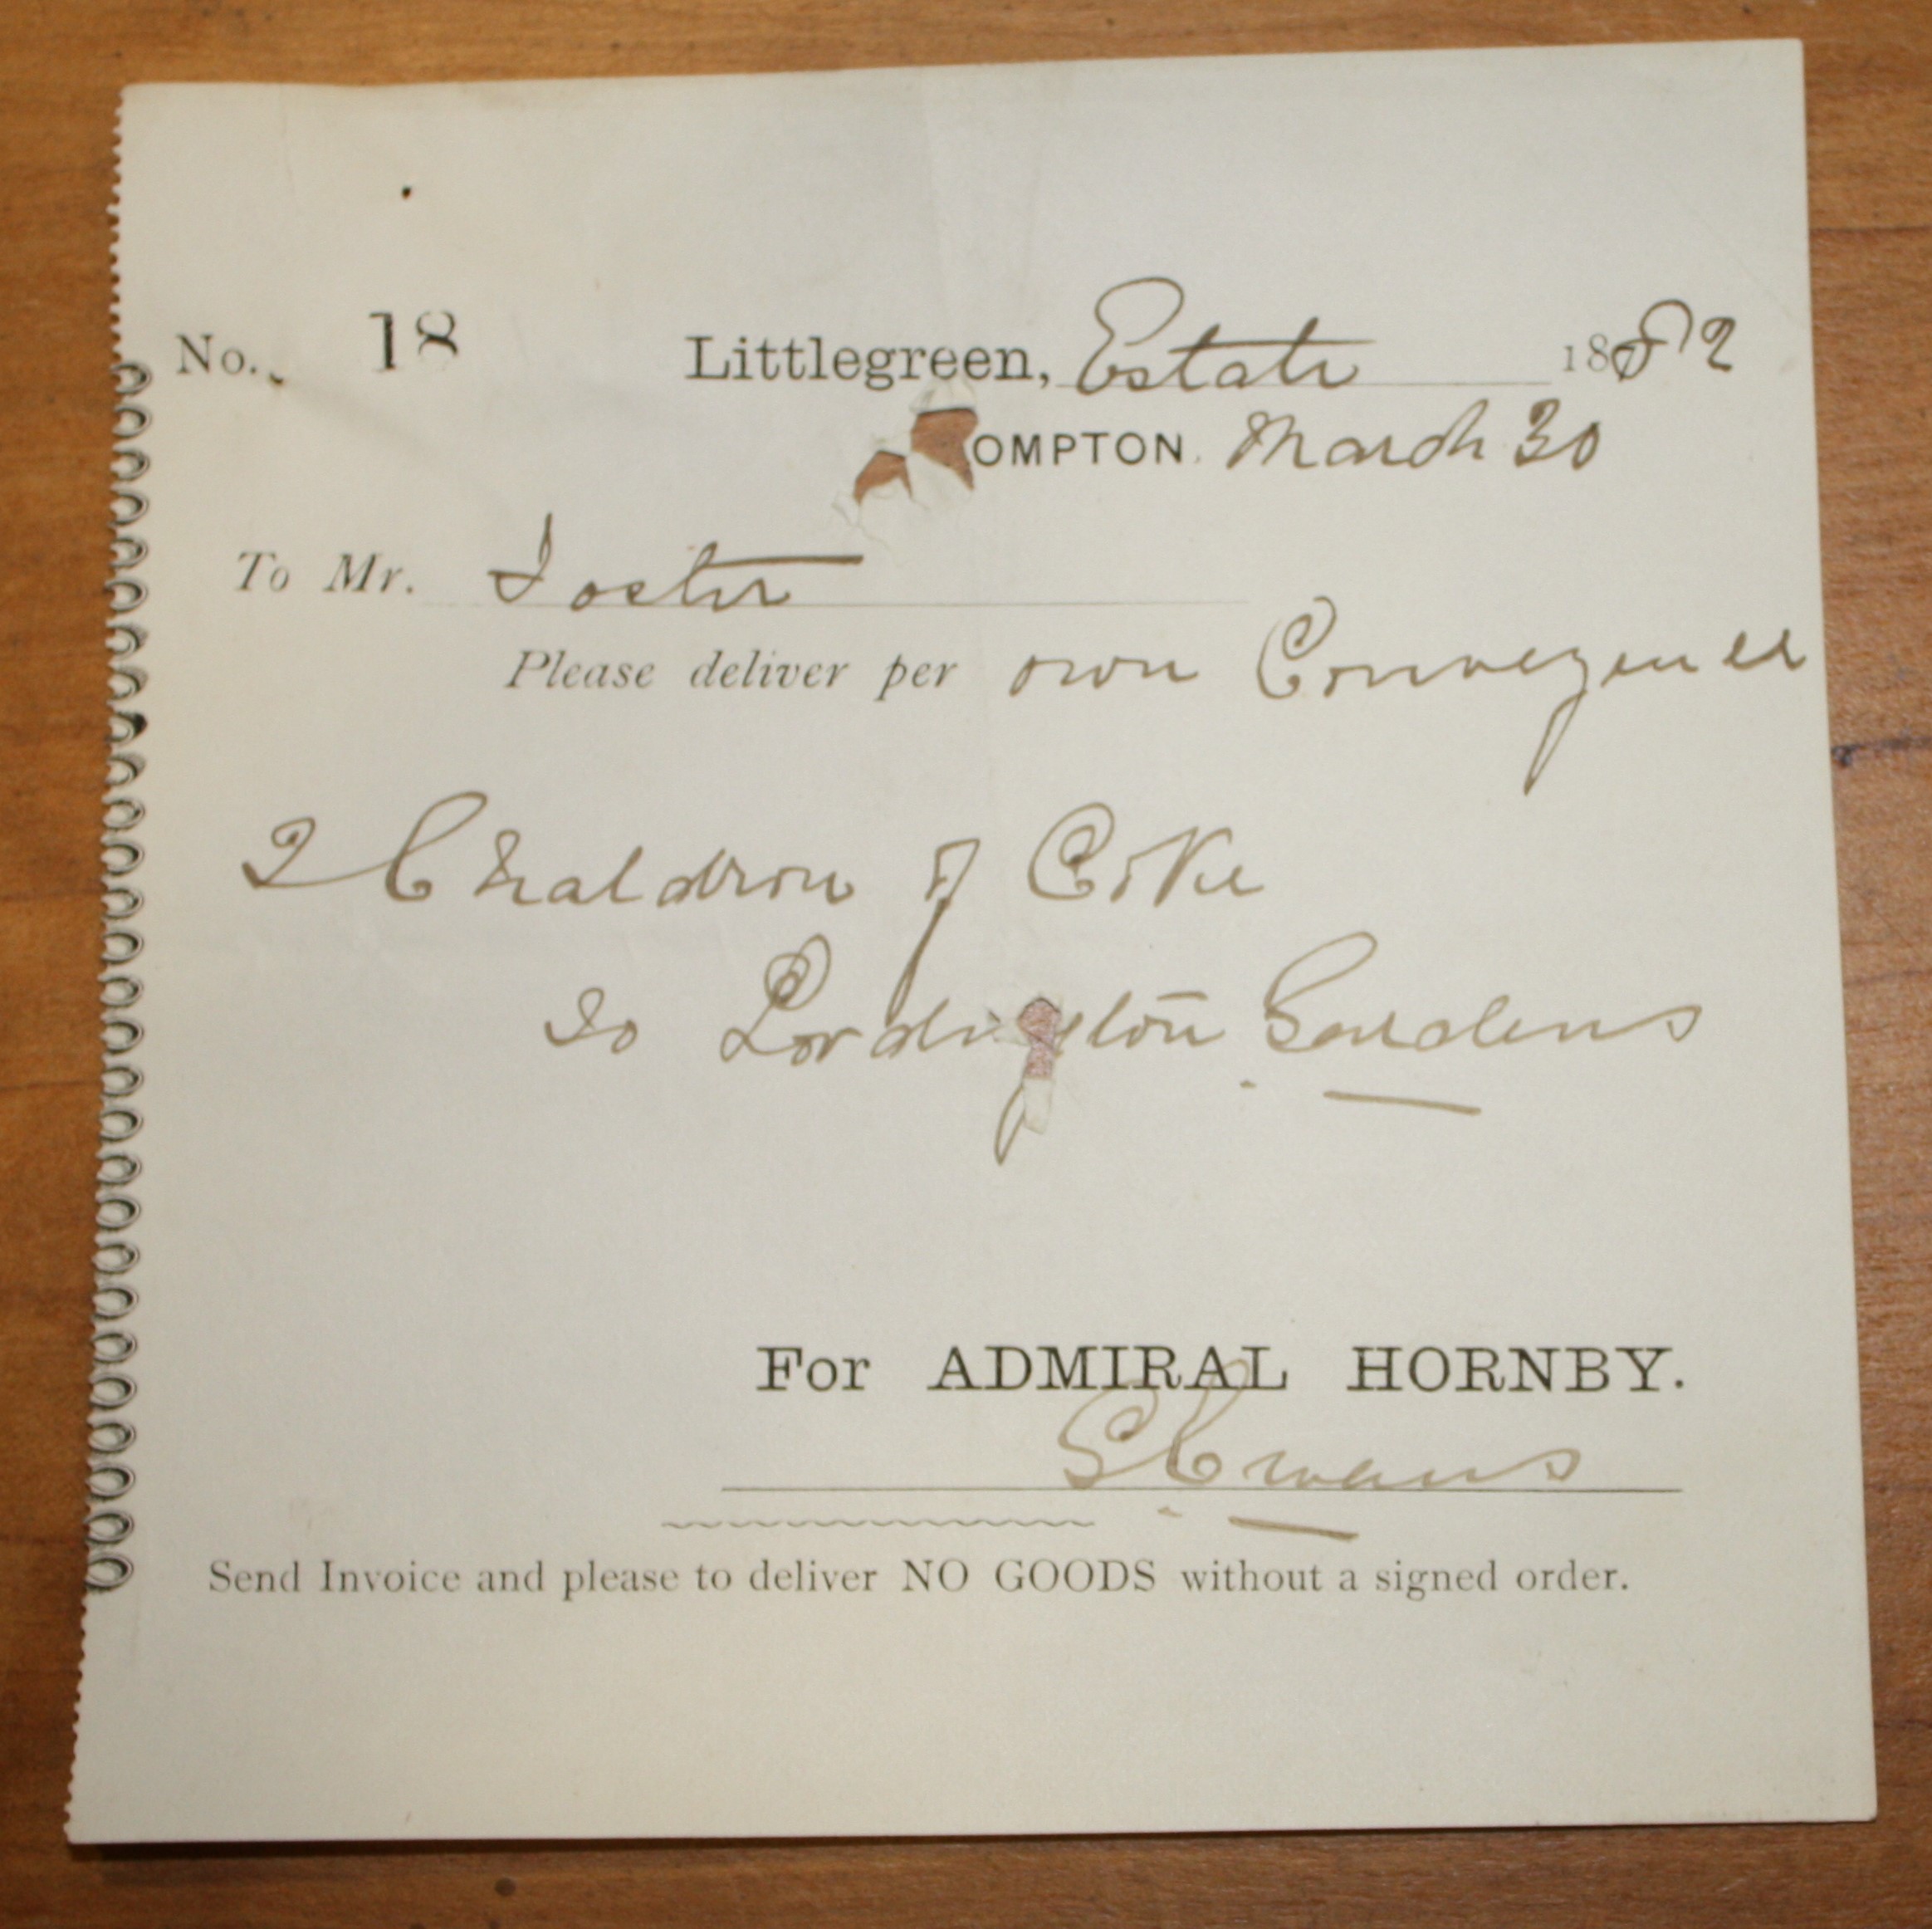 No. 18 Littlegreen, Estate 1882
OMPTON. March 30
To Mr. Foster
Please deliver per own Conveyence
2 Chaldron of Coke
To Lordington Gardens
For ADMIRAL HORNBY.
S Evans
Send Invoice and please to deliver NO GOODS without a signed order.